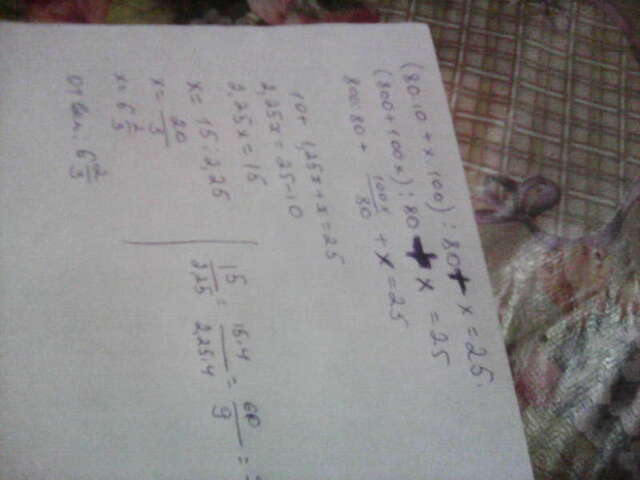 (80·10+x·100):80+x=25.
(800+100x):80+x=25
800:80+ 100x/80 +x=25
10+ 1,25x+x=25
2,25x=25-10
2,25x=15
x= 15:2,25
x= 20/3
x=6 2/3
Ответ: 6 2/3
15/2,25 = 15·4/2,25·4 = 60/9 =